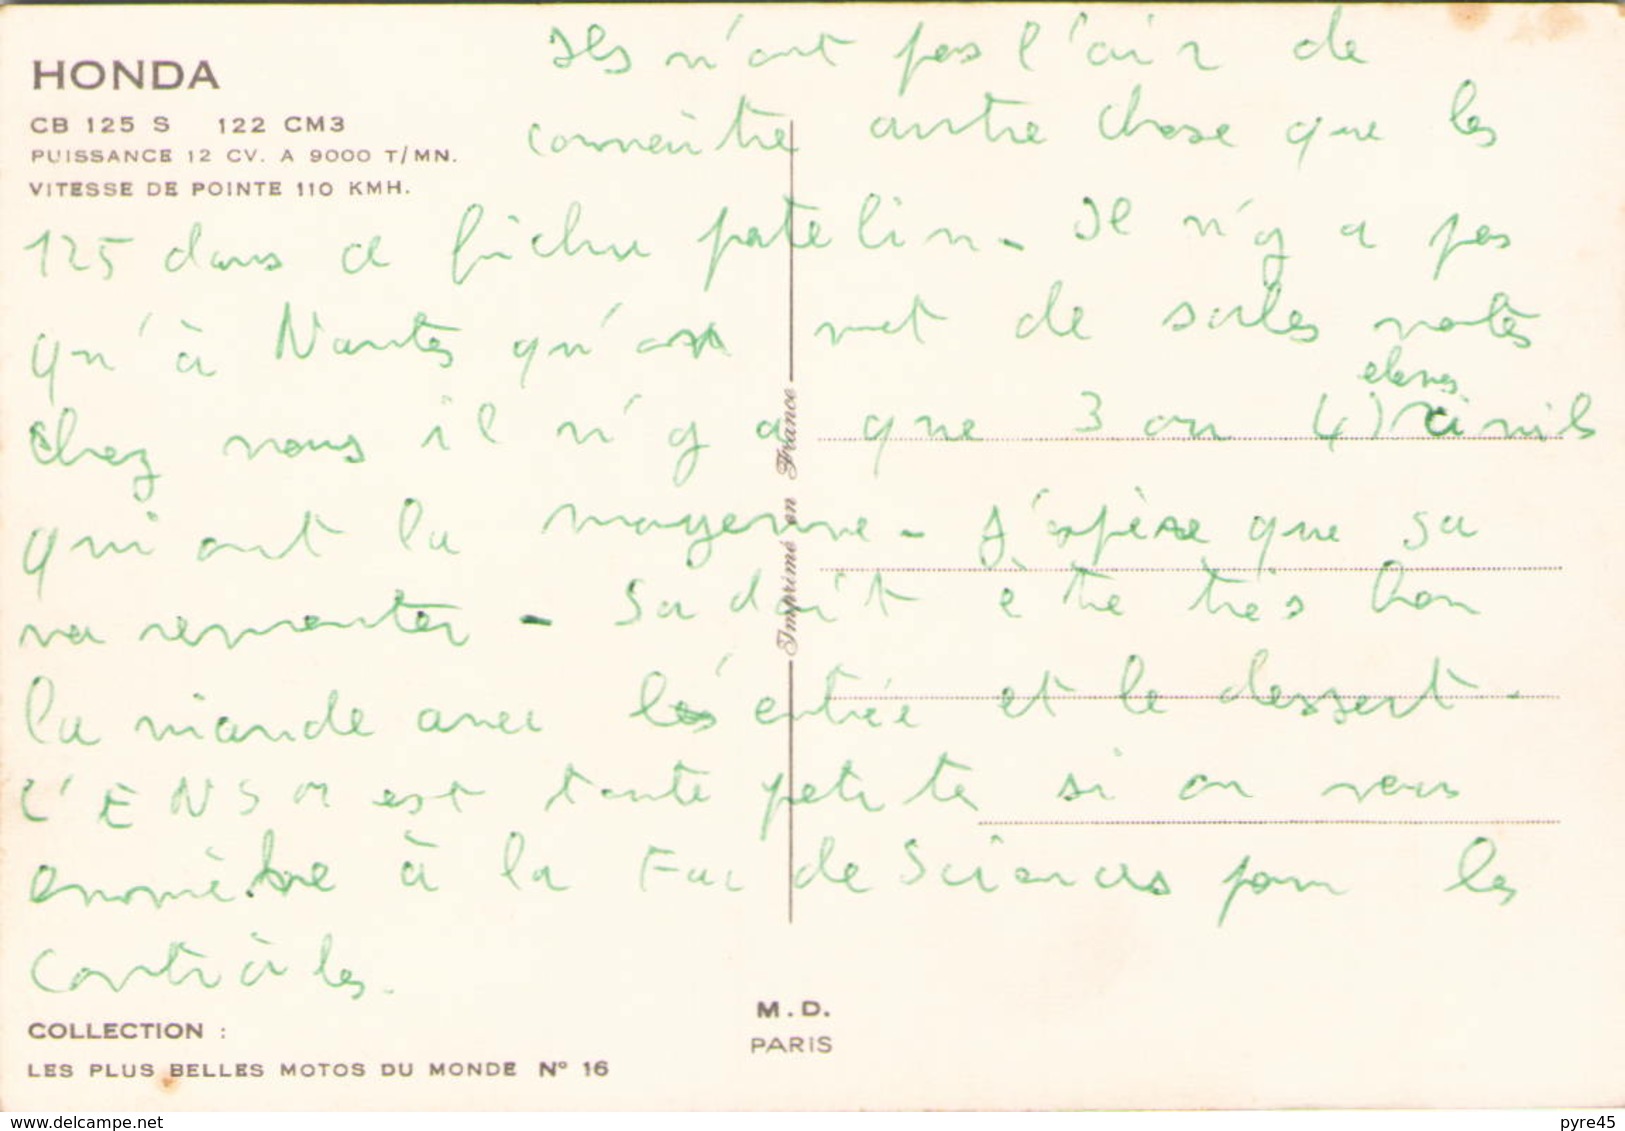 HONDA
CB 125 S 122 CM3
PUISSANCE 12 CV. A 9000 T/MN.
VITESSE DE POINTE 110 KMH.
Ils n'ont pas l'air de
connaître autre chose que les
125 dans ce fichu patelin. Il n'y a pas
qu'à Nantes qu'on met de sales notes
chez nous il n'y a que 3 ou 4) élèves civils
qui ont la moyenne. J'espère que sa
va remonter. Sa doit être très bon
la viande avec les entrée et le dessert.
L'ENSM est toute petite si on vous
emmène à la Fac de Sciences pour les
contrôles.
Imprimé en France
COLLECTION :
LES PLUS BELLES MOTOS DU MONDE N° 16
M.D.
PARIS
www.delcampe.net
pyre45